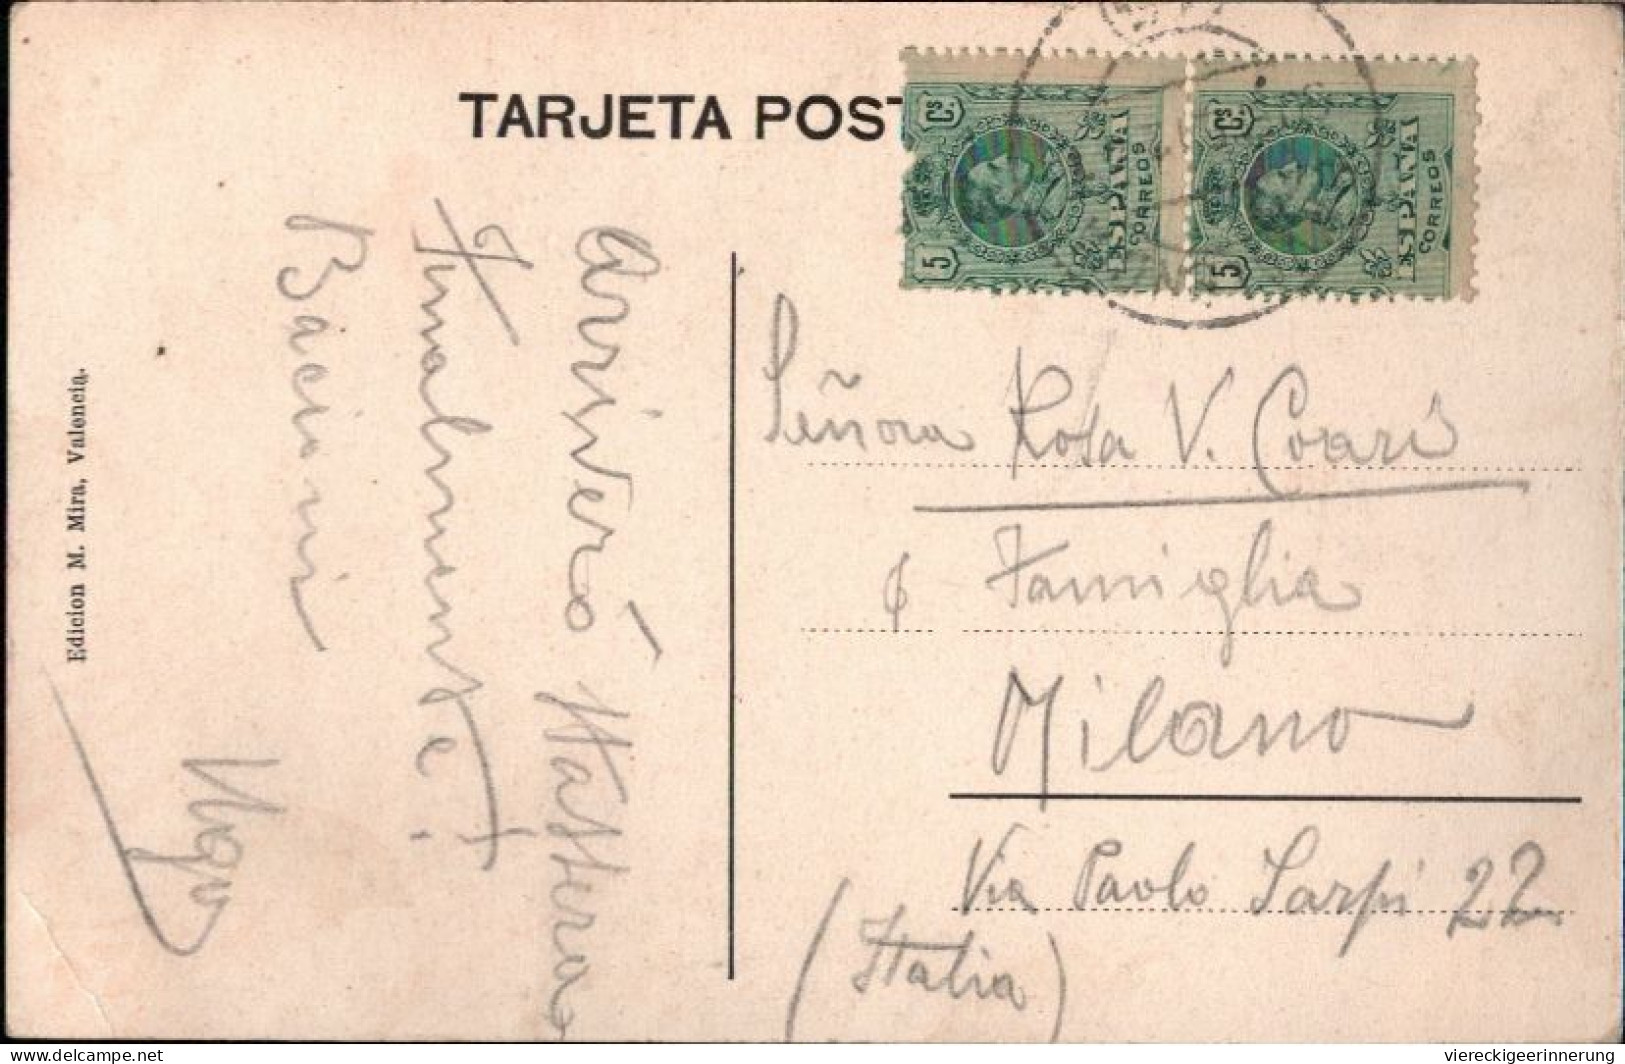 TARJETA POST
5 Cs. ESPAÑA CORREOS
5 Cs. ESPAÑA CORREOS
Arriverò stassera
finalmente!
Bacioni
Ugo
Señora Rosa V. Coari
e Famiglia
Milano
Via Paolo Sarpi 22
(Italia)
Edicion M. Mira, Valencia.
delcampe.net
viereckigeerinnerung